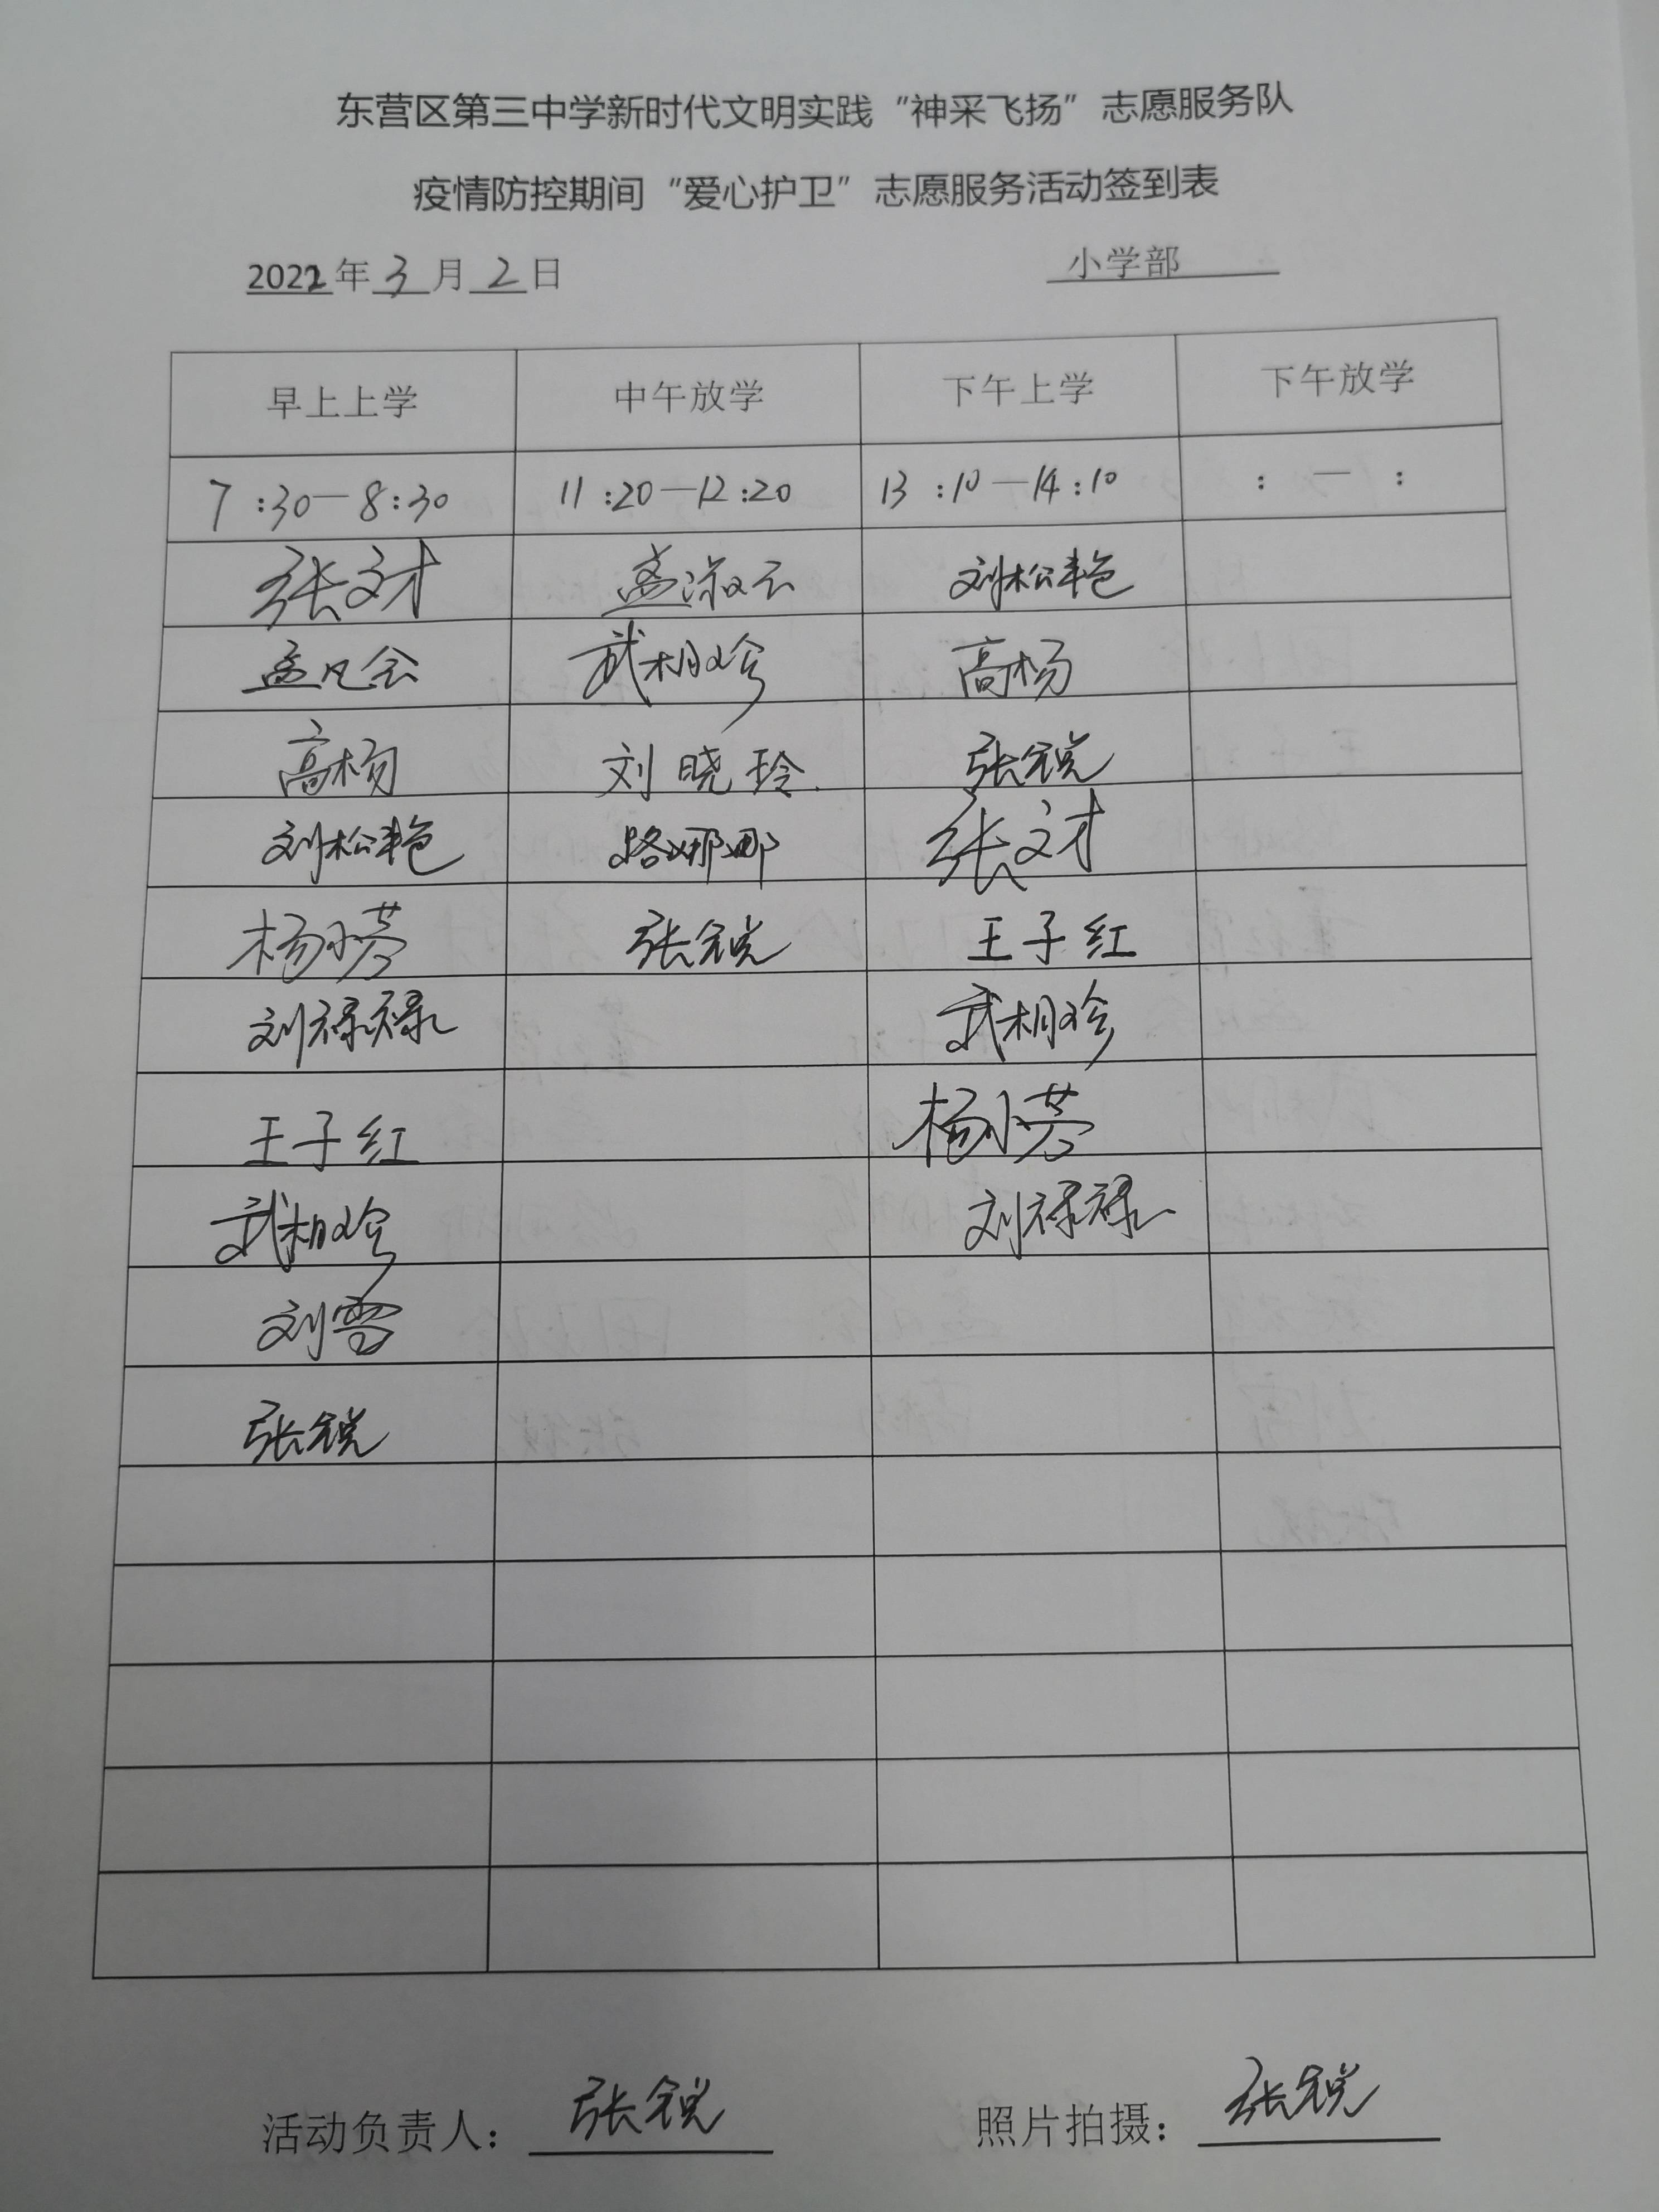 东营区第三中学新时代文明实践“神采飞扬”志愿服务队
疫情防控期间“爱心护卫”志愿服务活动签到表
2022年3月2日 小学部
早上上学 中午放学 下午上学 下午放学
7:30—8:30 11:20—12:20 13:10—14:10 : — :
张文才 孟淑云 刘松艳
孟凡会 武相珍 高杨
高杨 刘晓玲 张锐
刘松艳 路娜娜 张文才
杨小芳 张锐 王子红
刘禄禄 武相珍
王子红 杨小芳
武相珍 刘禄禄
刘雪
张锐
活动负责人：张锐 照片拍摄：张锐